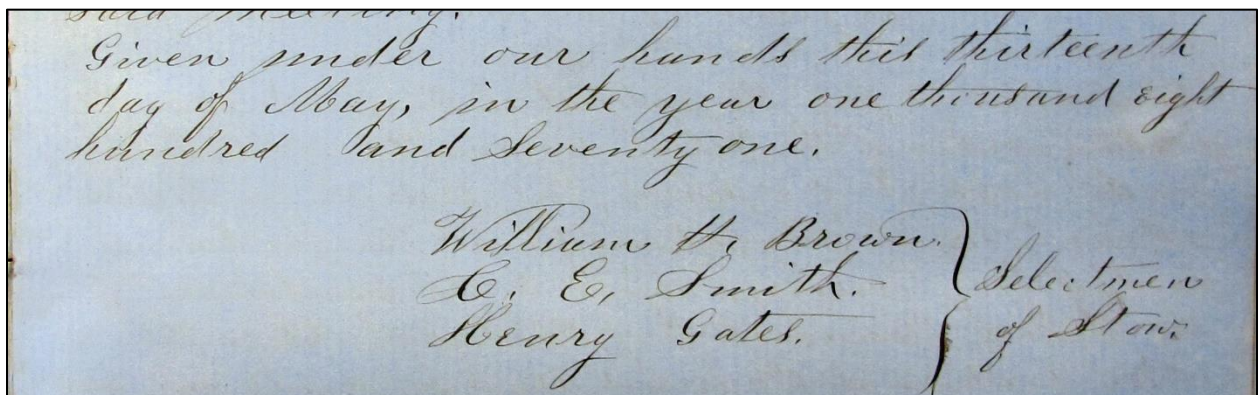 said meeting.
Given under our hands this thirteenth
day of May, in the year one thousand eight
hundred and Seventy one.
William H. Brown.
C. E. Smith.
Henry Gates.
Selectmen
of Stow.